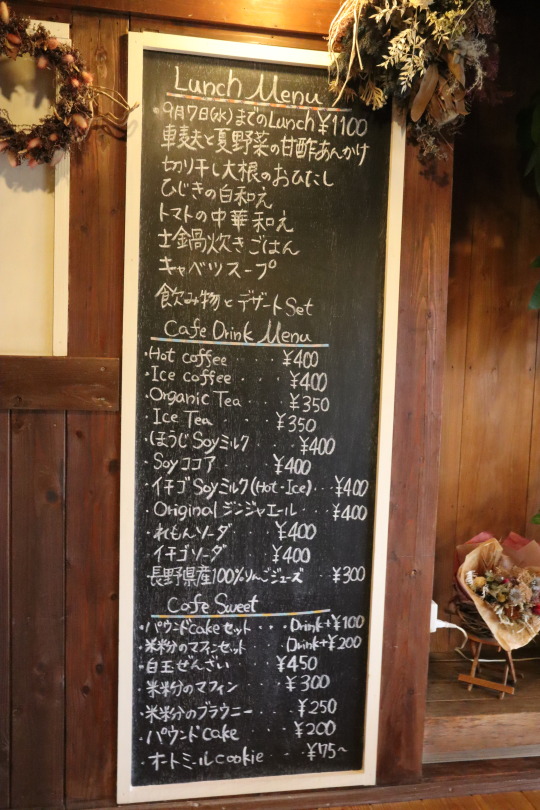 Lunch Menu
・9月7日(水)までのLunch ¥1100
車麩と夏野菜の甘酢あんかけ
切り干し大根のおひたし
ひじきの白和え
トマトの中華和え
土鍋炊きごはん
キャベツスープ
飲み物とデザートSet
Cafe Drink Menu
・Hot coffee ・・・・ ¥400
・Ice coffee ・・・・ ¥400
・Organic Tea ・・・ ¥350
・Ice Tea ・・・・ ¥350
・ほうじSoyミルク ・・・ ¥400
・Soyココア ・・・・ ¥400
・イチゴSoyミルク(Hot・Ice)・・¥400
・Originalジンジャエール・・・¥400
・れもんソーダ ¥400
・イチゴソーダ ¥400
・長野県産100%りんごジューズ・・¥300
Cafe Sweet
・パウンドcakeセット・・・・Drink+¥100
・米粉のマフィンセット Drink+¥200
・白玉ぜんざい ・・・ ¥450
・米粉のマフィン ・・・ ¥300
・米粉のブラウニー ・・・ ¥250
・パウンドcake ・・・ ¥200
・オートミールcookie ・・・ ¥75〜